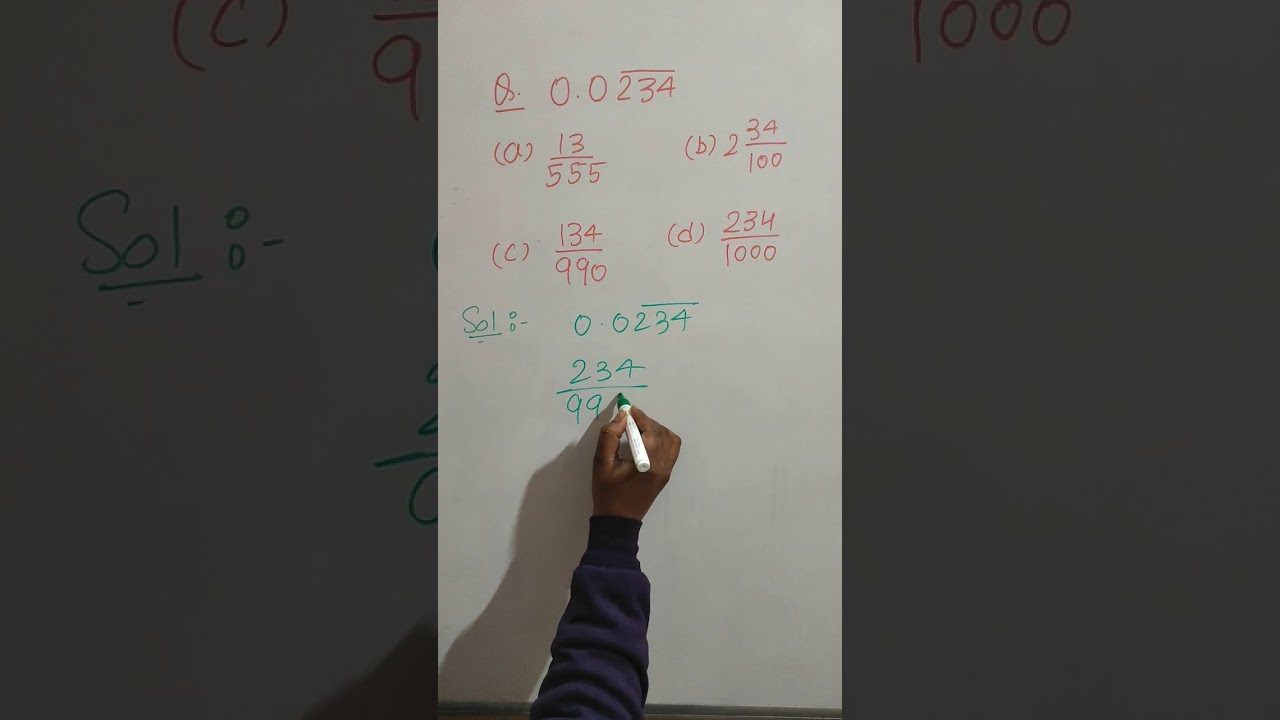 Q. 0.0\overline{234}
(a) 13/555 (b) 2 34/100
(c) 134/990 (d) 234/1000
Sol :- 0.0\overline{234}
234
99